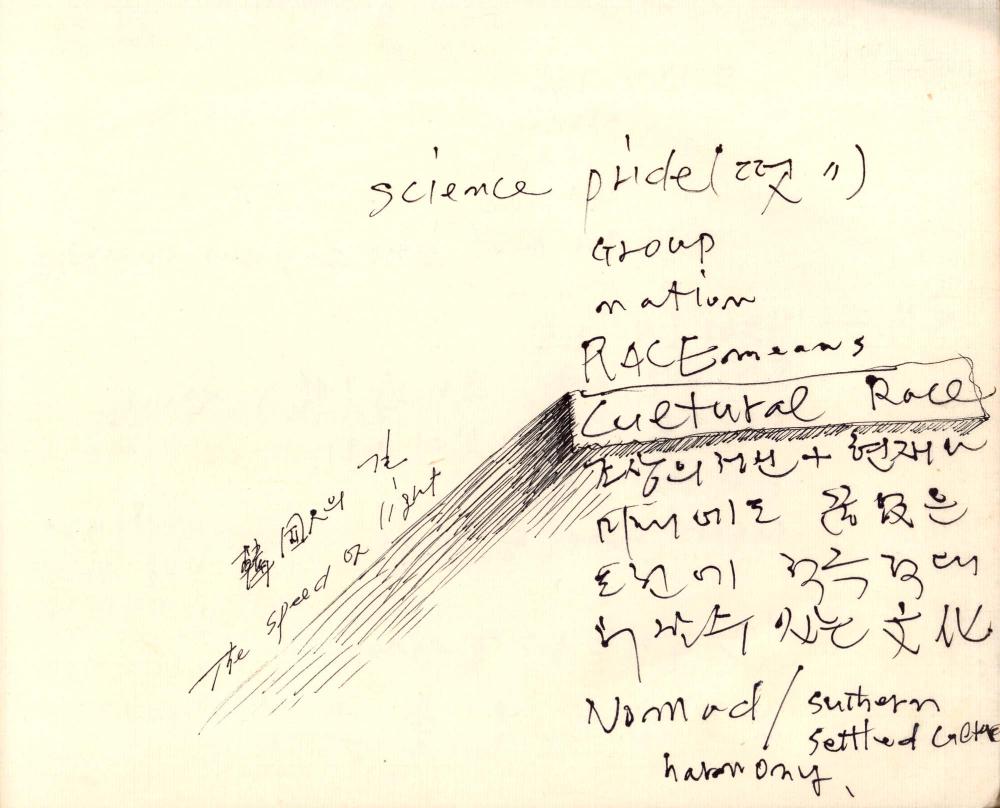 science pride(떳〃)
Group
nation
RACE means
Cultural Race
조상의 + 현재나
미래에도 끊없은
도전에 적극적
있는 文化
Nomad / suthern
settled culture
harmony
韓国人의 길
The speed of light